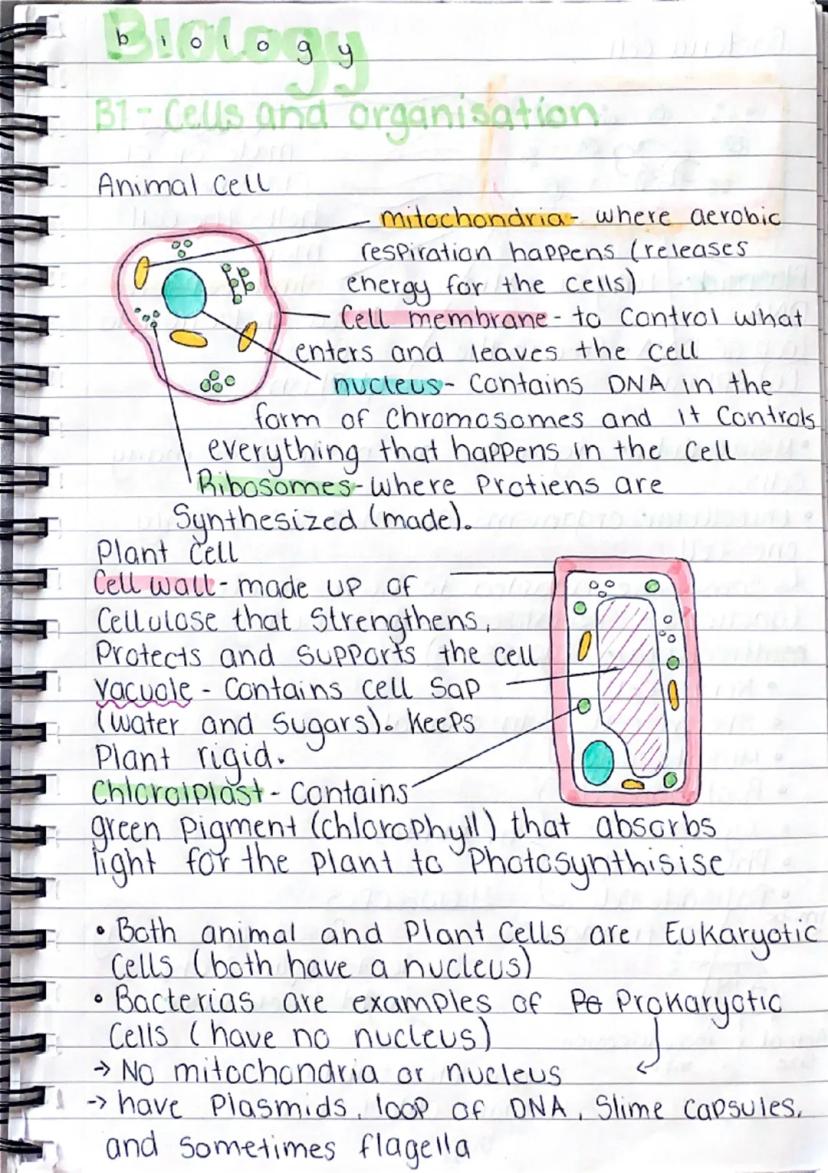 Biology
biology
B1 - Cells and organisation
Animal Cell
mitochondria - where aerobic
respiration happens (releases
energy for the cells)
Cell membrane - to control what
enters and leaves the cell
nucleus - Contains DNA in the
form of Chromosomes and it Controls
everything that happens in the Cell
Ribosomes - where Protiens are
Synthesized (made).
Plant Cell
Cell wall - made up of
Cellulose that Strengthens,
Protects and supports the cell
vacuole - Contains cell Sap
(water and Sugars). Keeps
Plant rigid.
Chlorolplast - Contains
green Pigment (chlorophyll) that absorbs
light for the Plant to Photosynthisise
• Both animal and Plant Cells are Eukaryotic
Cells (both have a nucleus)
• Bacterias are examples of Prokaryotic
Cells (have no nucleus)
→ No mitochondria or nucleus
→ have Plasmids, loop of DNA, Slime Capsules,
and sometimes flagella